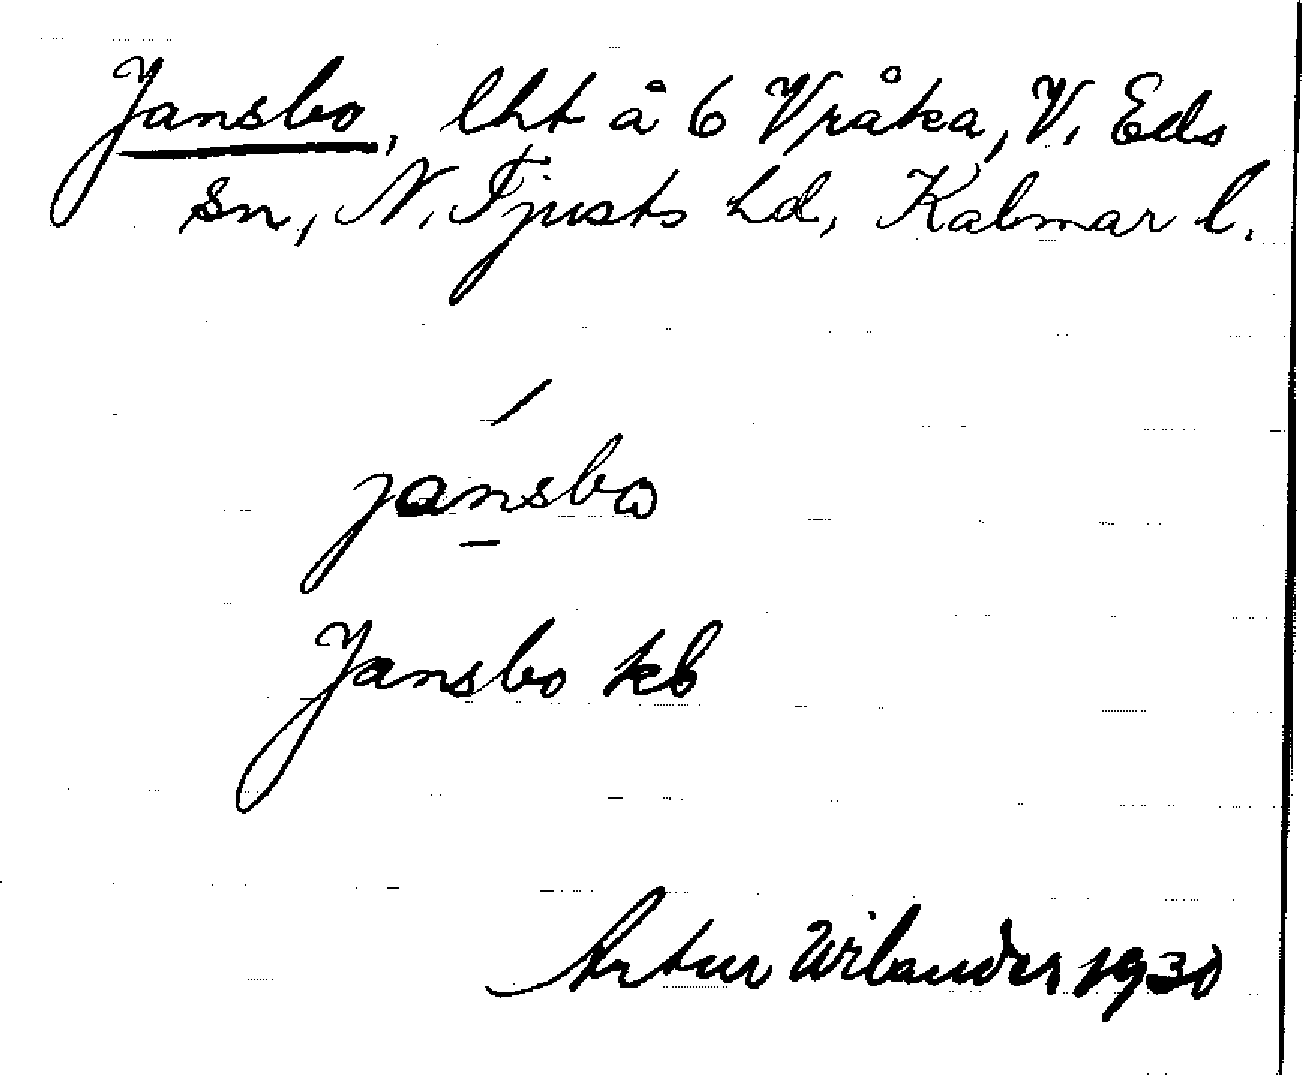 Jansbo, lht å 6 Vråka, V. Eds
sn, N. Tjusts hd, Kalmar l.
jansbω
Jansbo kb
Artur Wilander 1930